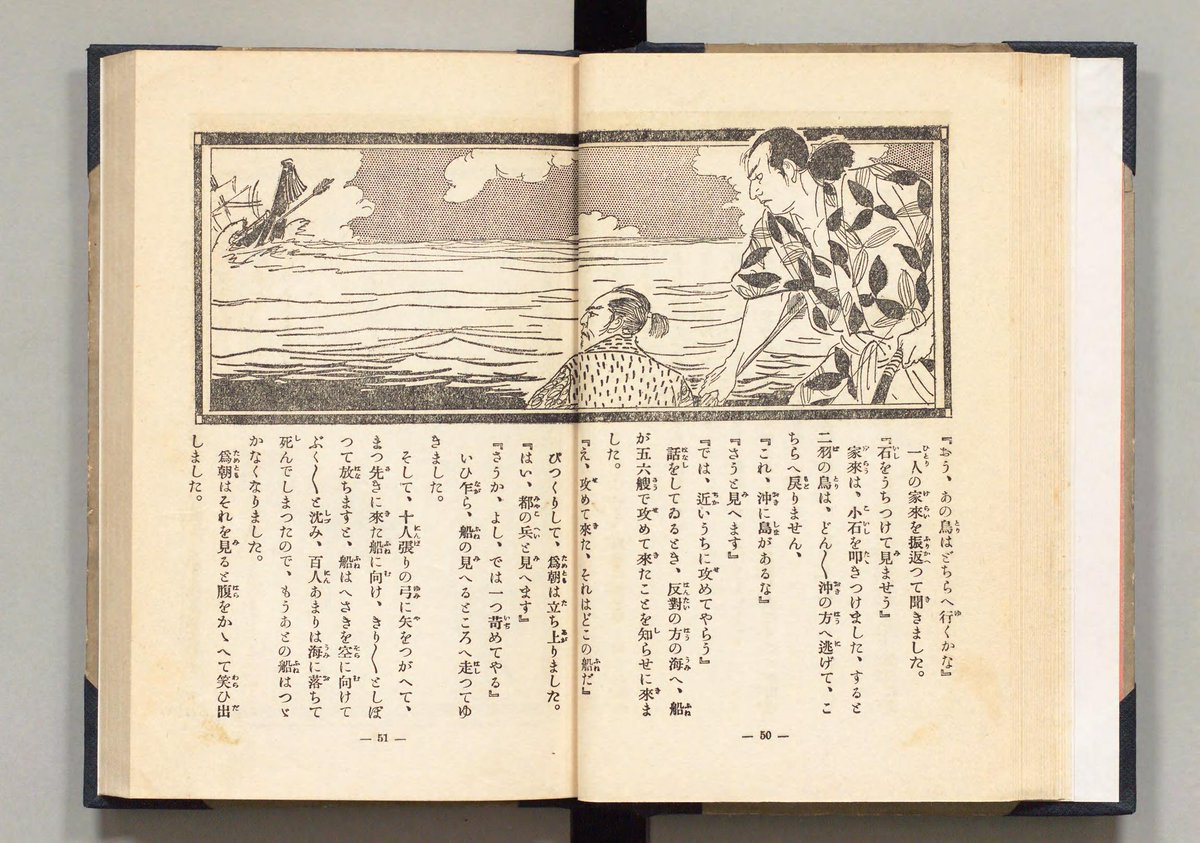 『おう、あの鳥はどちらへ行くかな』
一人の家來を振返つて聞きました。
『石をうちつけて見ませう』
家來は、小石を叩きつけました、すると
二羽の鳥は、どん〳〵沖の方へ逃げて、こ
ちらへ戻りません、
『これ、沖に島があるな』
『さうと見へます』
『では、近いうちに攻めてやらう』
話をしてゐるとき、反對の方の海へ、船
が五六艘で攻めて來たことを知らせに來ま
した。
― 50 ―
『え、攻めて來た、それはどこの船だ』
びつくりして、爲朝は立ち上りました。
『はい、都の兵と見へます』
『さうか、よし、では一つ苛めてやる』
いひ乍ら、船の見へるところへ走つてゆ
きました。
そして、十人張りの弓に矢をつがへて、
まつ先きに來た船に向け、きり〳〵としぼ
つて放ちますと、船はへさきを空に向けて
ぶく〳〵と沈み、百人あまりは海に落ちて
死んでしまつたので、もうあとの船はつゞ
かなくなりました。
爲朝はそれを見ると腹をかゝへて笑ひ出
しました。
― 51 ―